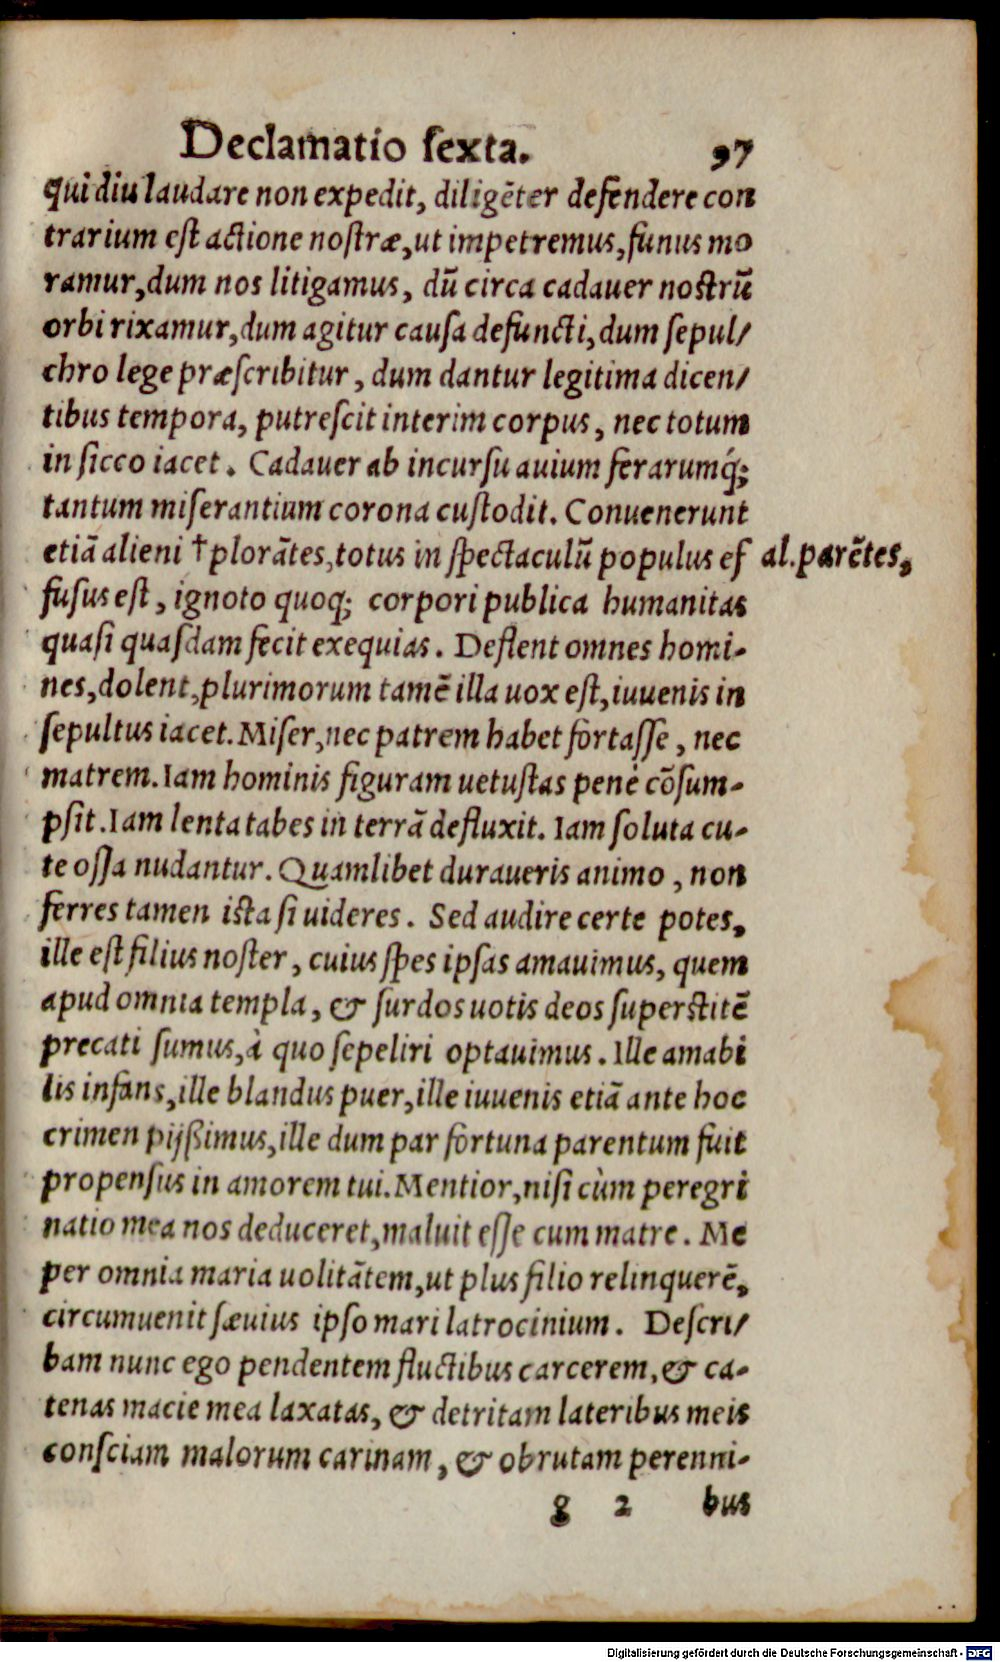 Declamatio ſexta. 97
qui diu laudare non expedit, diligēter defendere con
trarium eſt actione noſtræ, ut impetremus, funus mo
ramur, dum nos litigamus, dū circa cadauer noſtrū
orbi rixamur, dum agitur cauſa defuncti, dum ſepul/
chro lege præſcribitur, dum dantur legitima dicen/
tibus tempora, putreſcit interim corpus, nec totum
in ſicco iacet. Cadauer ab incurſu auium ferarumq́;
tantum miſerantium corona cuſtodit. Conuenerunt
etiā alieni † plorātes, totus in ſpectaculū populus ef al. parētes,
fuſus eſt, ignoto quoq; corpori publica humanitas
quaſi quaſdam fecit exequias. Deflent omnes homi-
nes, dolent, plurimorum tamē illa uox eſt, iuuenis in
ſepultus iacet. Miſer, nec patrem habet fortaſſe, nec
matrem. Iam hominis figuram uetuſtas penè cōſum-
pſit. Iam lenta tabes in terrā defluxit. Iam ſoluta cu-
te oſſa nudantur. Quamlibet duraueris animo, non
ferres tamen iſta ſi uideres. Sed audire certe potes,
ille eſt filius noſter, cuius ſpes ipſas amauimus, quem
apud omnia templa, & ſurdos uotis deos ſuperſtitē
precati ſumus, à quo ſepeliri optauimus. Ille amabi
lis infans, ille blandus puer, ille iuuenis etiā ante hoc
crimen pijßimus, ille dum par fortuna parentum fuit
propenſus in amorem tui. Mentior, niſi cùm peregri
natio mea nos deduceret, maluit eſſe cum matre. Me
per omnia maria uolitātem, ut plus filio relinquerē,
circumuenit ſæuius ipſo mari latrocinium. Deſcri/
bam nunc ego pendentem fluctibus carcerem, & ca-
tenas macie mea laxatas, & detritam lateribus meis
conſciam malorum carinam, & obrutam perenni-
g 2 bus
Digitalisierung gefördert durch die Deutsche Forschungsgemeinschaft - DFG